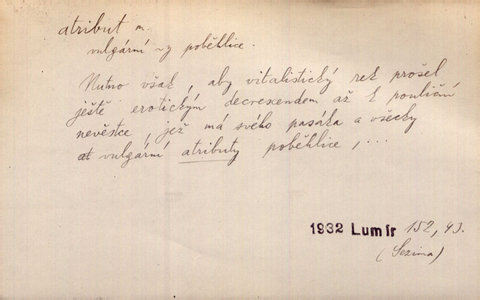 atribut m.
vulgární ~y poběhlice.
Nutno však, aby vitalistický rek prošel
ještě erotickým decrescendem až k pouliční
nevěstce, jež má svého pasáka a všecky
at vulgární atributy poběhlice, ...
1932 Lumír 152, 93.
(Sezima)